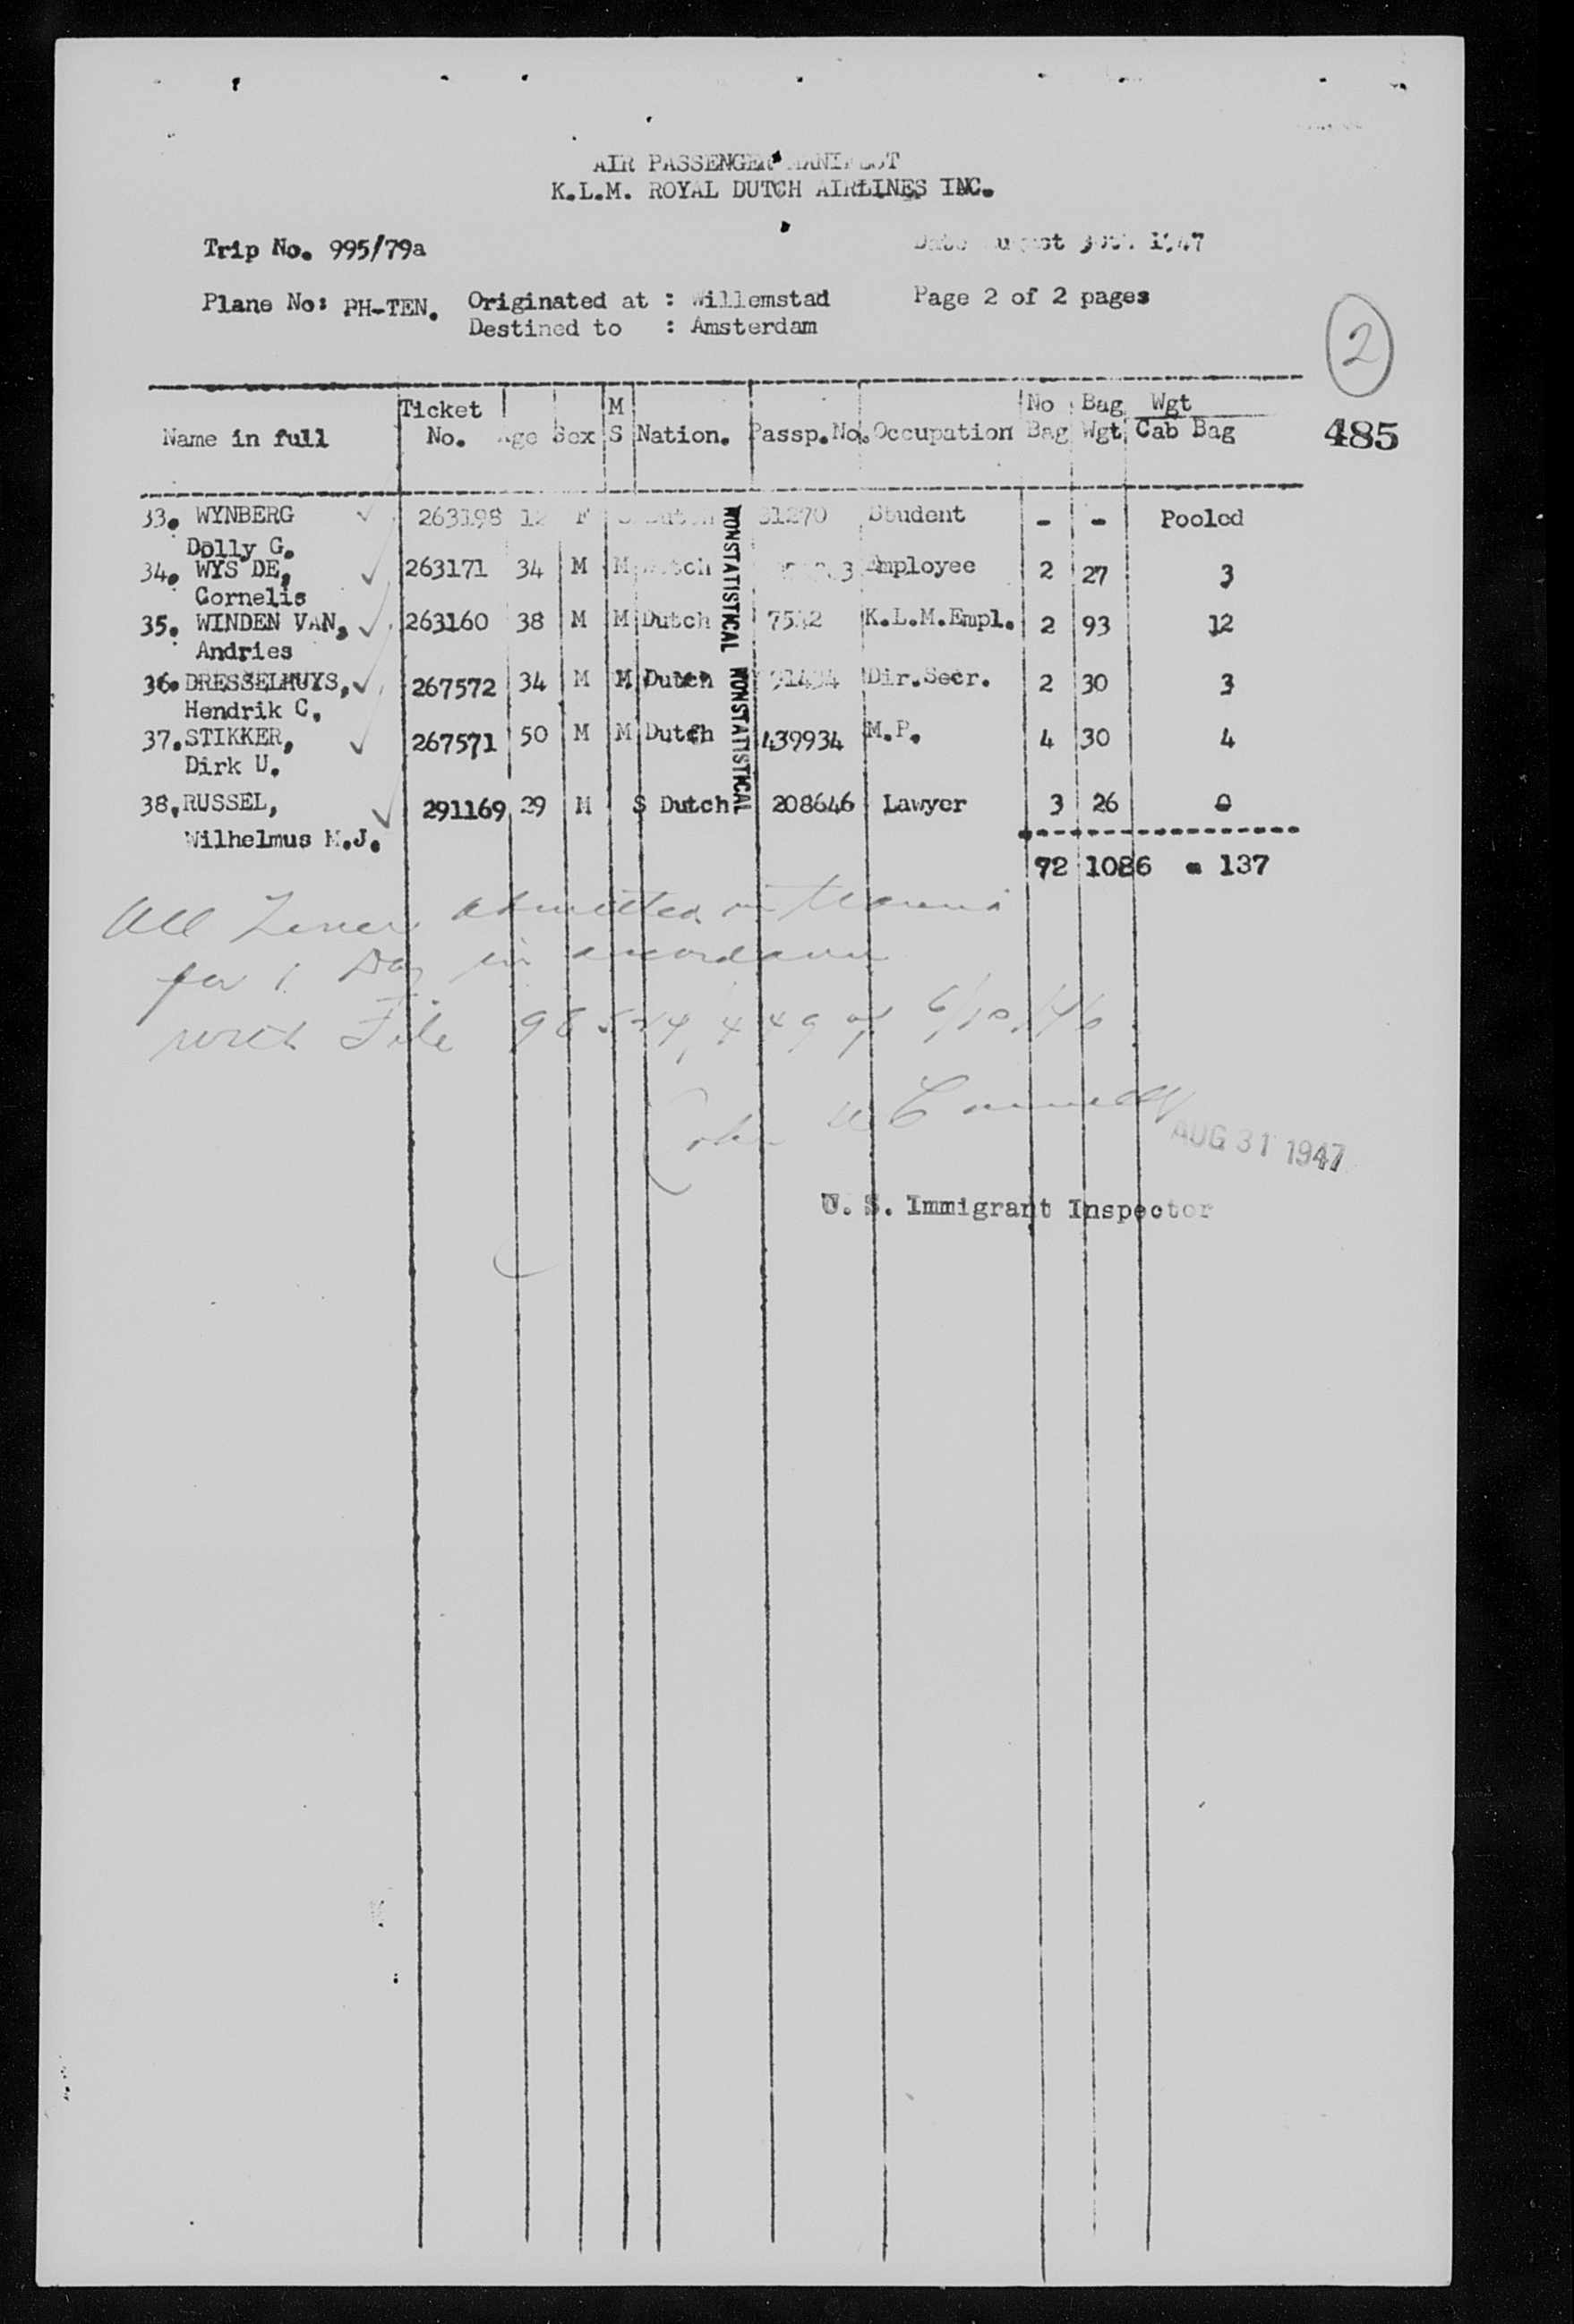 AIR PASSENGER MANIFEST
K.L.M. ROYAL DUTCH AIRLINES INC.
Trip No. 995/79a Date August 30th. 1947
Plane No: PH-TEN. Originated at : Willemstad Page 2 of 2 pages
Destined to : Amsterdam
2
Ticket M No Bag Wgt
Name in full No. Age Sex S Nation. Passp.No. Occupation Bag Wgt Cab Bag 485
33. WYNBERG 263198 12 F S Dutch 31270 Student - - Pooled
Dolly G.
34. WYS DE, 263171 34 M M Dutch Employee 2 27 3
Cornelis
35. WINDEN VAN, 263160 38 M M Dutch K.L.M.Empl. 2 93 12
Andries
36. DRESSELHUYS, 267572 34 M M Dutch Dir.Secr. 2 30 3
Hendrik C.
37. STIKKER, 267571 50 M M Dutch 439934 M.P. 4 30 4
Dirk U.
38. RUSSEL, 291169 29 M S Dutch 208646 Lawyer 3 26 0
Wilhelmus M.J.
NONSTATISTICAL NONSTATISTICAL
72 1086 = 137
All admitted in
for 1 Day in accordance
with File of 6/10/46
AUG 31 1947
U. S. Immigrant Inspector